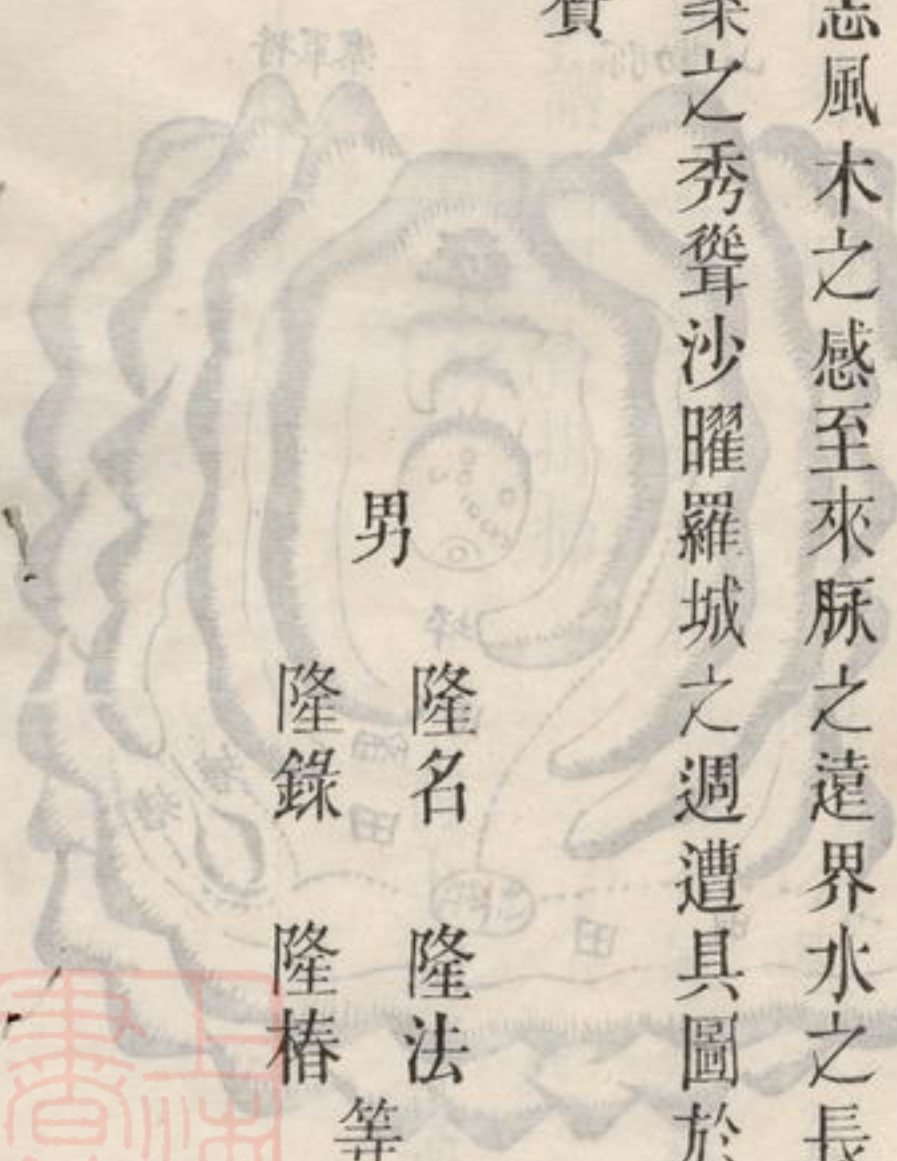 志風木之感至來脉之遠界水之長
案之秀聳沙曜羅城之週遭具圖於
男
隆名 隆法
隆錄 隆椿
等